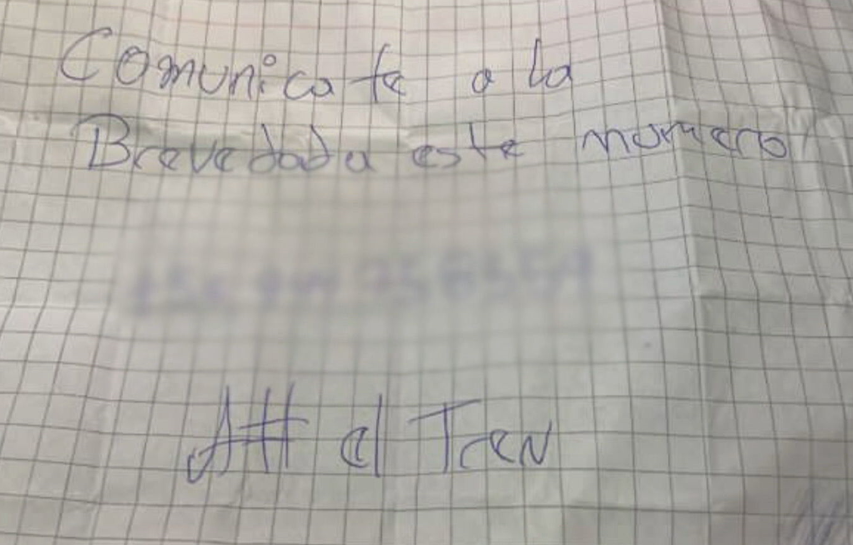 Comunicate a la
Brevedada este numero
Att el Tren